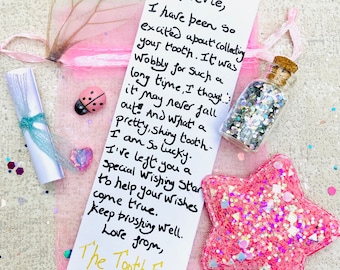 I have been so
excited about collecting
your tooth. It was
Wobbly for such a
long time, I thoug
it may never fall
out! And what a
pretty, shiny tooth-
I am so lucky.
I've left you a
Special Wishing Star
to help your wishes
come true.
Keep brushing well.
Love from,
The Tooth F